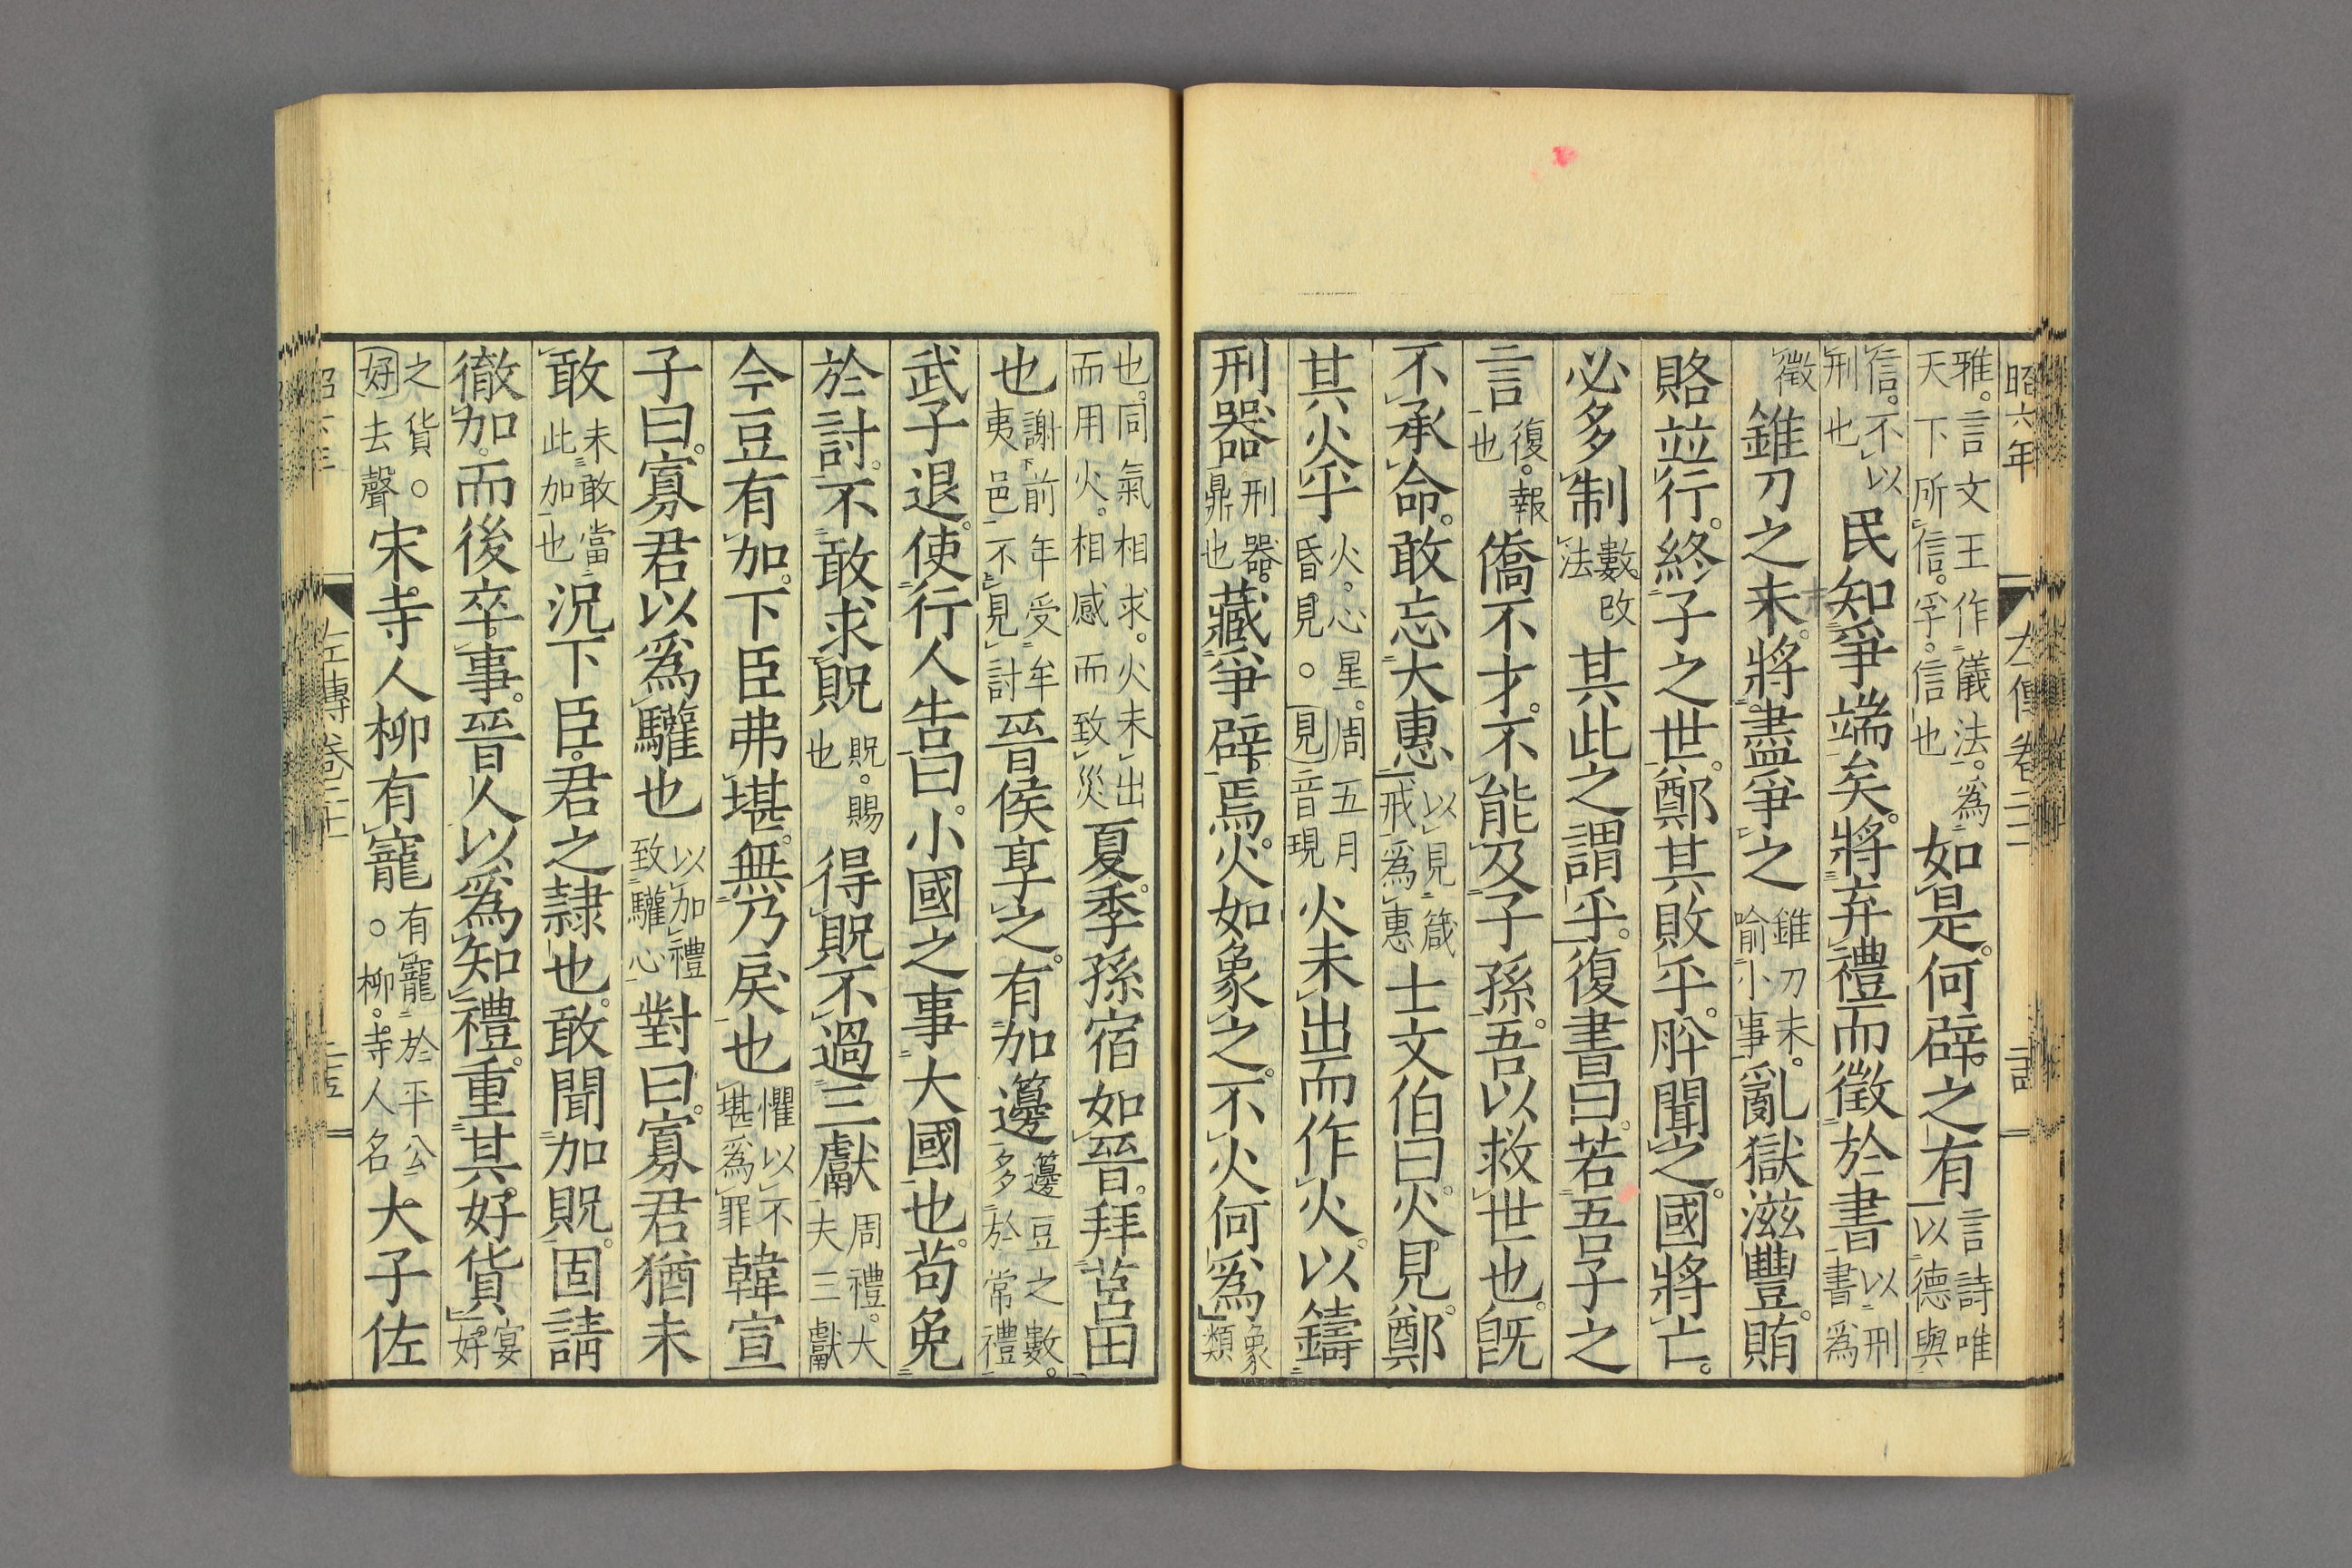 昭六年　左傳卷二二
雅。言文王作儀法。爲天下所信。孚。信也如是。何辟之有言詩唯以德與
信。不以刑也民知爭端矣。將弃禮而徵於書以刑書爲
徵錐刀之末。將盡爭之錐刀末。喻小事亂獄滋豐。賄
賂竝行。終子之世。鄭其敗乎。肸聞之。國將亡。
必多制數改法其此之謂乎。復書曰。若吾子之
言復。報也僑不才。不能及子孫。吾以救世也。既
不承命。敢忘大惠以見箴戒爲惠士文伯曰。火見。鄭
其火乎火。心星。周五月昏見。○見音現火未出而作火。以鑄
刑器刑器。鼎也藏爭辟焉。火如象之。不火何爲象類
也。同氣相求。火未出而用火。相感而致災夏。季孫宿如晉。拜莒田
也謝前年受牟夷邑不見討晉侯享之。有加籩籩豆之數。多於常禮
武子退。使行人告曰。小國之事大國也。苟免
於討。不敢求貺貺。賜也得貺不過三獻周禮。大夫三獻
今豆有加。下臣弗堪。無乃戾也懼以不堪爲罪韓宣
子曰。寡君以爲驩也以加禮致驩心對曰。寡君猶未
敢未敢當此加也況下臣。君之隸也。敢聞加貺。固請
徹加。而後卒事。晉人以爲知禮。重其好貨。宴好
之貨。○好去聲宋。寺人柳有寵有寵於平公。○柳。寺人名大子佐
左傳卷二十